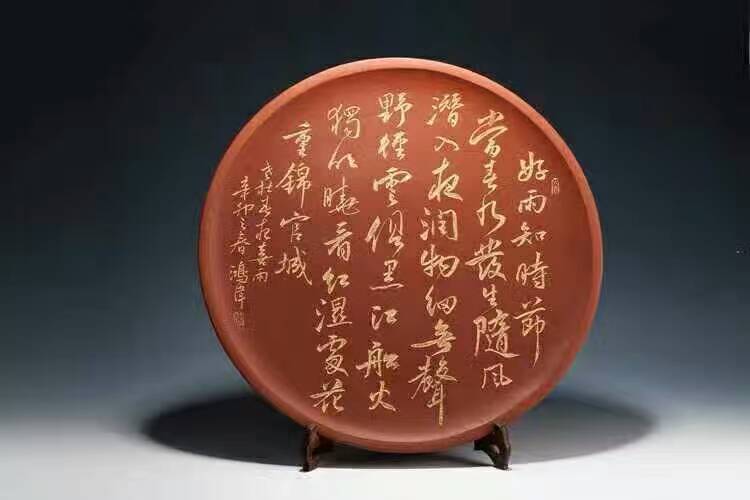 好雨知時節
當春乃發生隨風
潛入夜潤物細無聲
野徑雲俱黑江船火
獨明曉看紅濕處花
重錦官城
老杜春夜喜雨
辛卯之春鴻